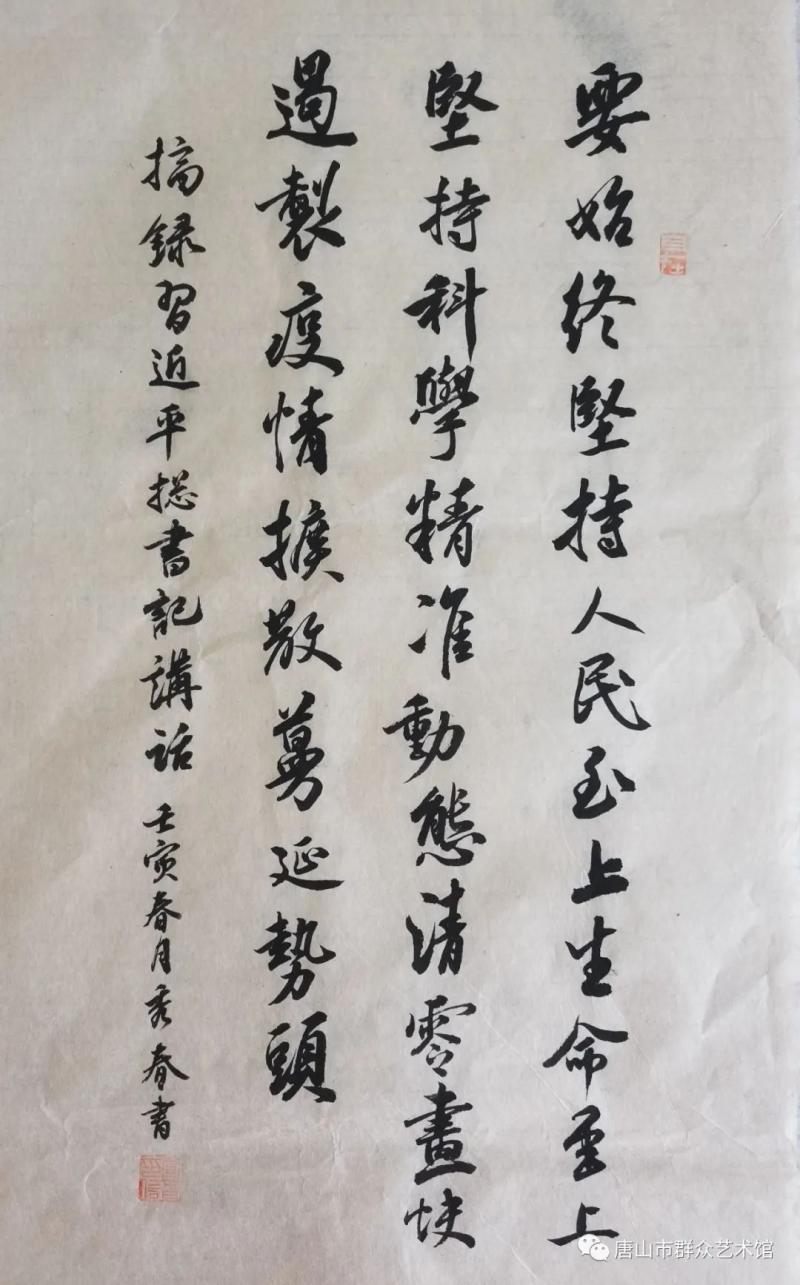 要始终堅持人民至上生命至上
堅持科學精准動態清零畫快
遏製疫情擴散蔓延勢頭
摘録習近平總書記講话
壬寅春月秀春書
唐山市群众艺术馆